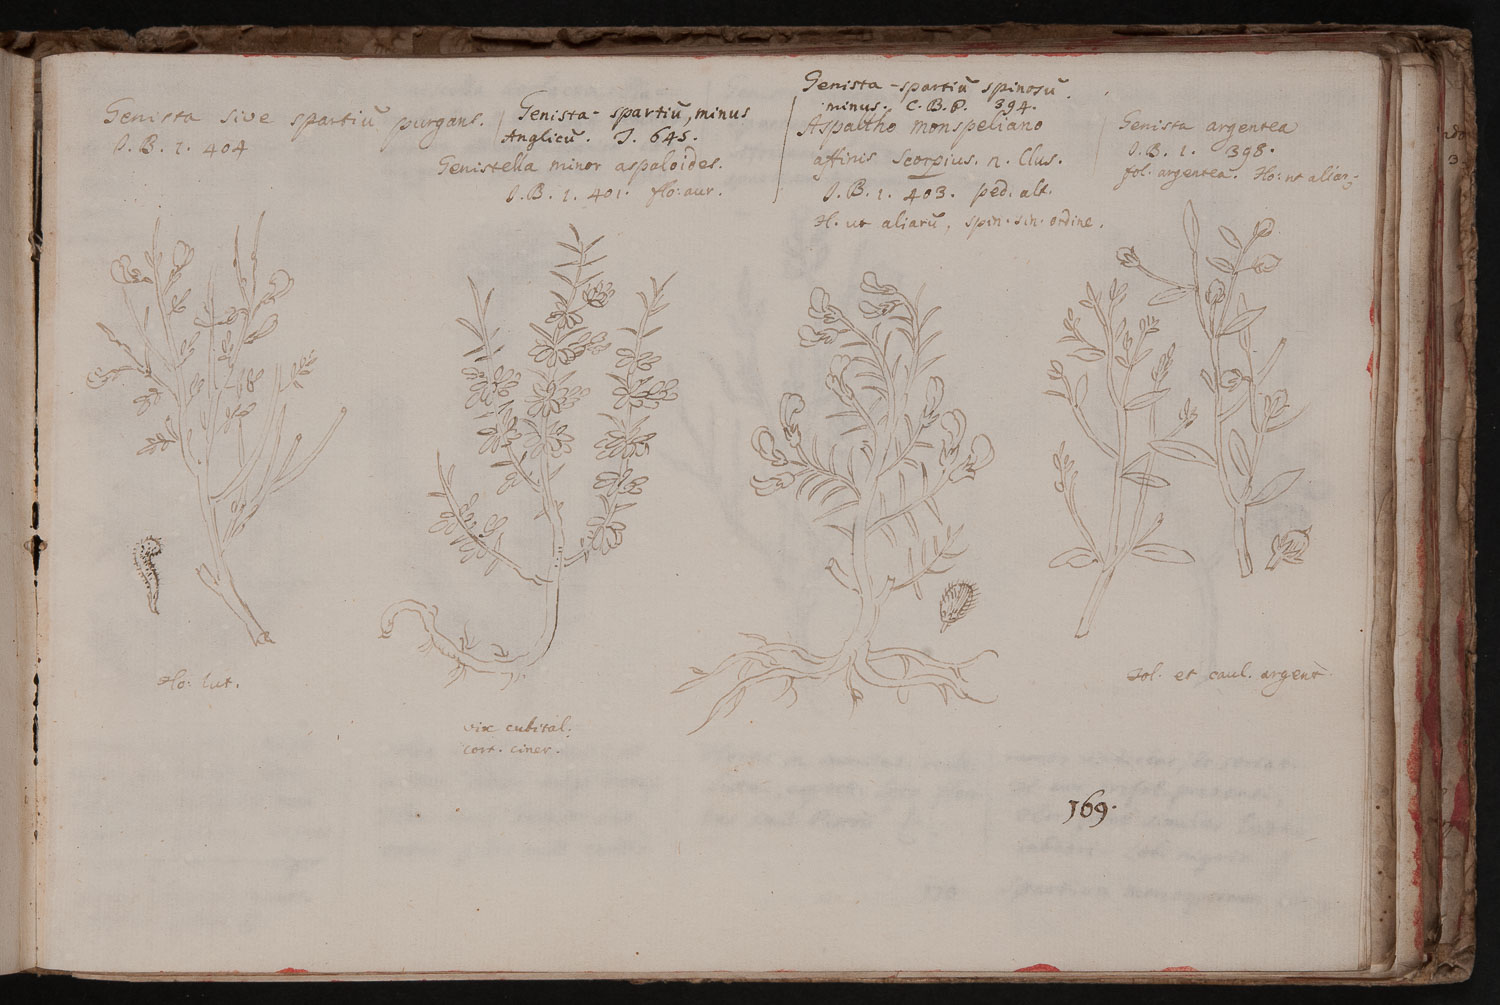 Genista sive spartiū purgans.
J. B. 1. 404
Genista-spartiū minus
Anglicū. T. 645.
Genistella minor aspaloides.
J. B. 1. 401. flo: aur.
Genista-spartiū spinosū
minus. C. B. P. 394.
Aspaltho monspeliano
affinis Scorpius. n. Clus.
J. B. 1. 403. ped: alt.
fl. ut aliarū, spin. sin. ordine.
Genista argentea
J. B. 1. 398.
fol. argentea. flo: ut aliar:
flo: lut.
vix cubital:
cort. ciner.
fol. et caul. argent.
169.